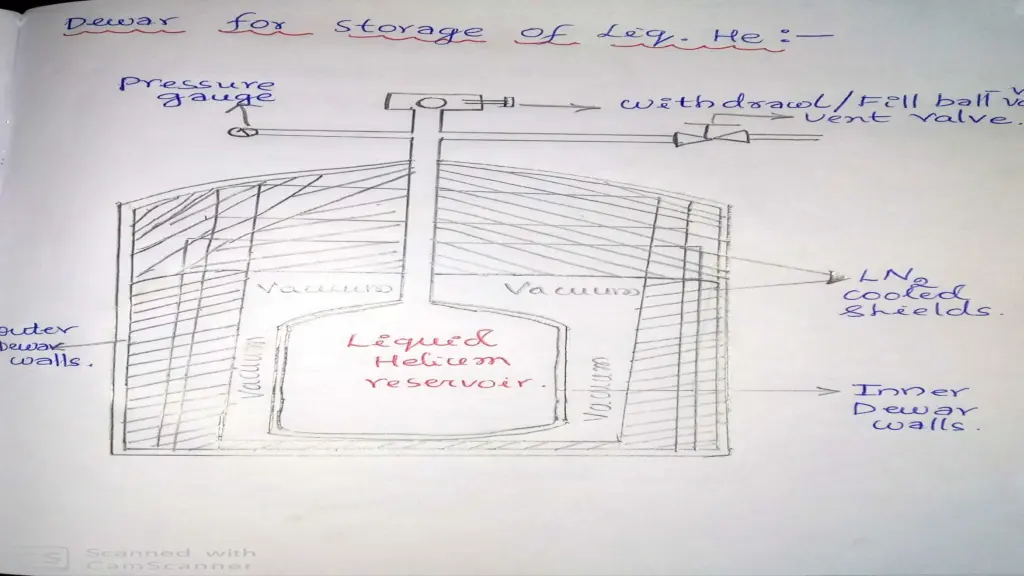 Dewar for storage of Liq. He :—
Pressure
gauge
withdrawl/Fill ball
vent valve.
Vacuum
Vacuum
LN2
cooled
shields.
outer
Dewar
walls.
Liquid
Helium
reservoir.
Vacuum
Vacuum
Inner
Dewar
walls.
Scanned with
CamScanner